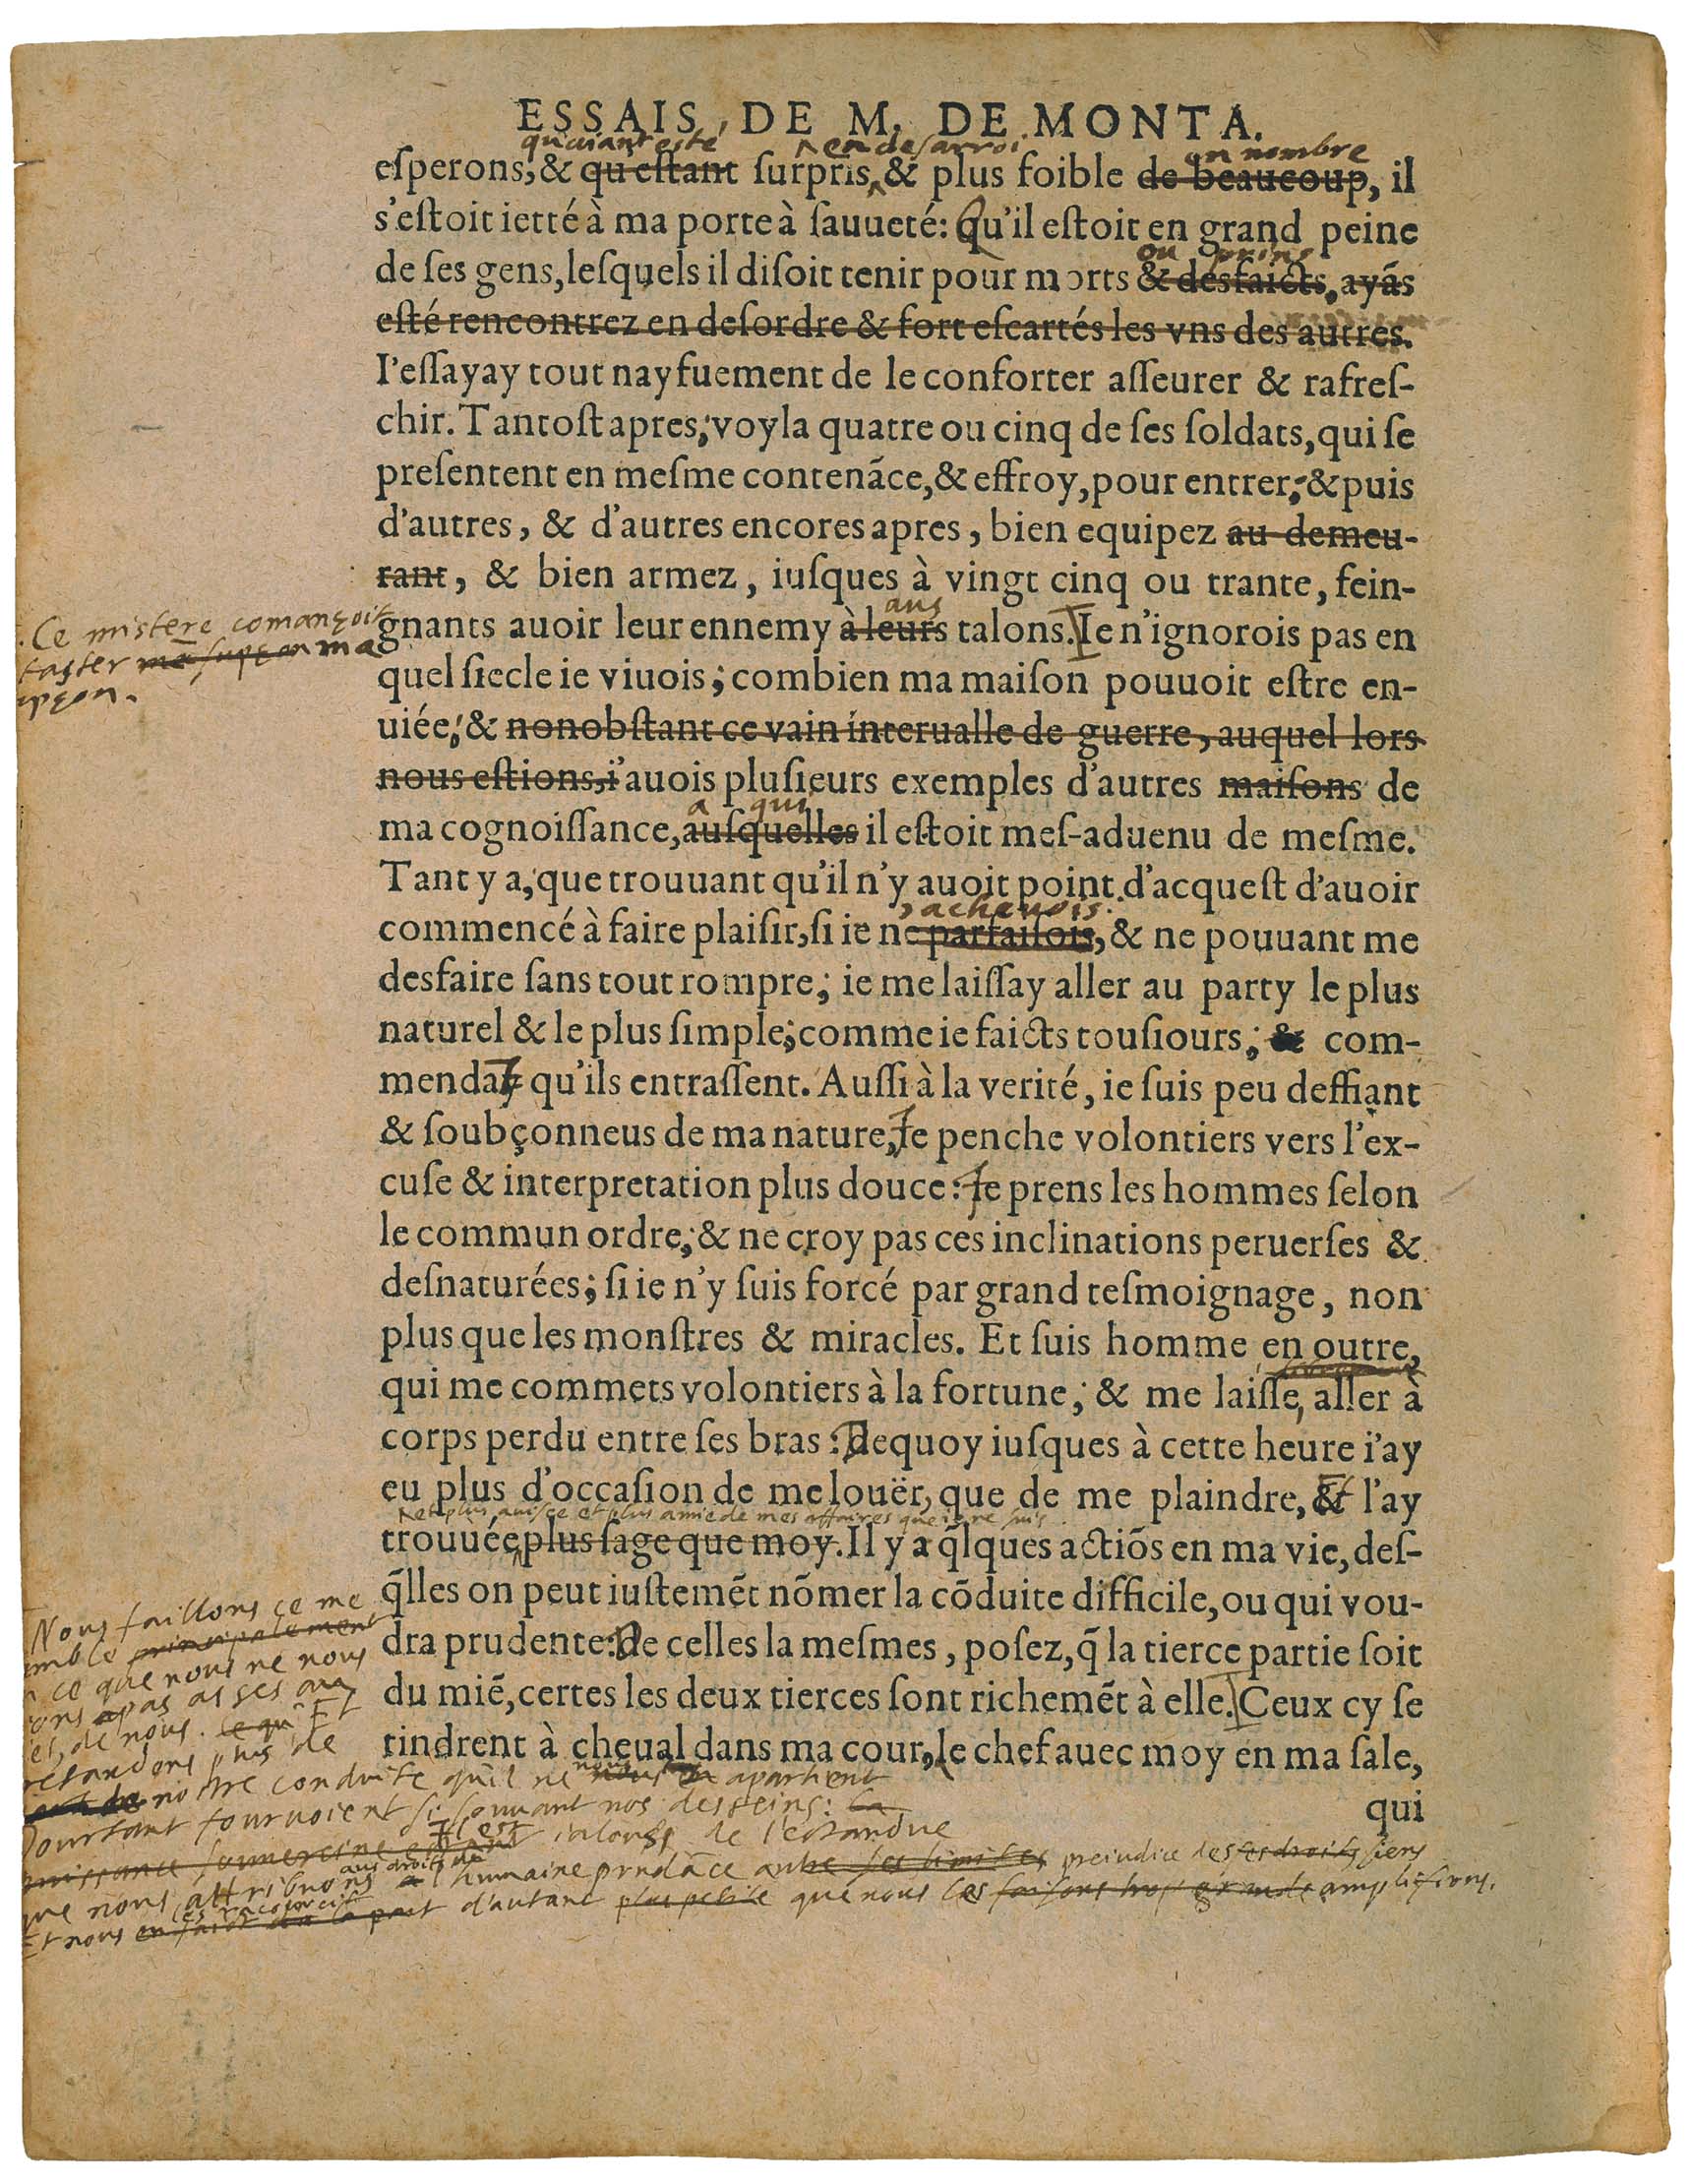 ESSAIS, DE M. DE MONTA.
qu'aiant esté en desarroi en nombre
esperons, & qu'estant surpris & plus foible de beaucoup, il
s'estoit ietté à ma porte à sauueté: Qu'il estoit en grand peine
ou prins
de ses gens, lesquels il disoit tenir pour morts & desfaicts, ayãs
esté rencontrez en desordre & fort escartés les vns des autres.
I'essayay tout nayfuement de le conforter asseurer & rafres-
chir. Tantost apres, voyla quatre ou cinq de ses soldats, qui se
presentent en mesme contenãce, & effroy, pour entrer, & puis
d'autres, & d'autres encores apres, bien equipez au demeu-
rant, & bien armez, iusques à vingt cinq ou trante, fein-
aus
gnants auoir leur ennemy à leurs talons. Ie n'ignorois pas en
Ce mistere comançoit
taster ma
pçon.
quel siecle ie viuois; combien ma maison pouuoit estre en-
uiée: & nonobstant ce vain interualle de guerre, auquel lors
nous estions, i'auois plusieurs exemples d'autres maisons de
a qui
ma cognoissance, ausquelles il estoit mes-aduenu de mesme.
Tant y a, que trouuant qu'il n'y auoit point d'acquest d'auoir
achevois
commencé à faire plaisir, si ie ne parfaisois, & ne pouuant me
desfaire sans tout rompre; ie me laissay aller au party le plus
naturel & le plus simple; comme ie faicts tousiours; & com-
menday qu'ils entrassent. Aussi à la verité, ie suis peu deffiant
& soubçonneus de ma nature, Ie penche volontiers vers l'ex-
cuse & interpretation plus douce: Ie prens les hommes selon
le commun ordre; & ne croy pas ces inclinations peruerses &
desnaturées; si ie n'y suis forcé par grand tesmoignage, non
plus que les monstres & miracles. Et suis homme en outre,
qui me commets volontiers à la fortune; & me laisse aller à
corps perdu entre ses bras: Dequoy iusques à cette heure i'ay
eu plus d'occasion de me louër, que de me plaindre, Et l'ay
et plus avisee et plus amie de mes affaires que ie ne suis
trouuée plus sage que moy. Il y a q̃lques actiõs en ma vie, des-
q̃lles on peut iustemẽt nõmer la cõduite difficile, ou qui vou-
dra prudente: De celles la mesmes, posez, q̃ la tierce partie soit
du miẽ, certes les deux tierces sont richemẽt à elle. Ceux cy se
tindrent à cheual dans ma cour, le chef auec moy en ma sale,
qui
Nous faillons ce me
mble principalement
ce que nous ne nous
ons pas asses au
de nous. Et
retandons plus de
nostre conduite qu'il ne nous apartient
Pourtant fourvoient si souvant nos desseins: La
Il est ialous de l'estandue
puissance souvereine
aus droits de
que nous attribuons a l'humaine prudãce preiudice des siens
les racourcit
Et nous d'autant plus petite que nous les faisons trop grande amplifions.